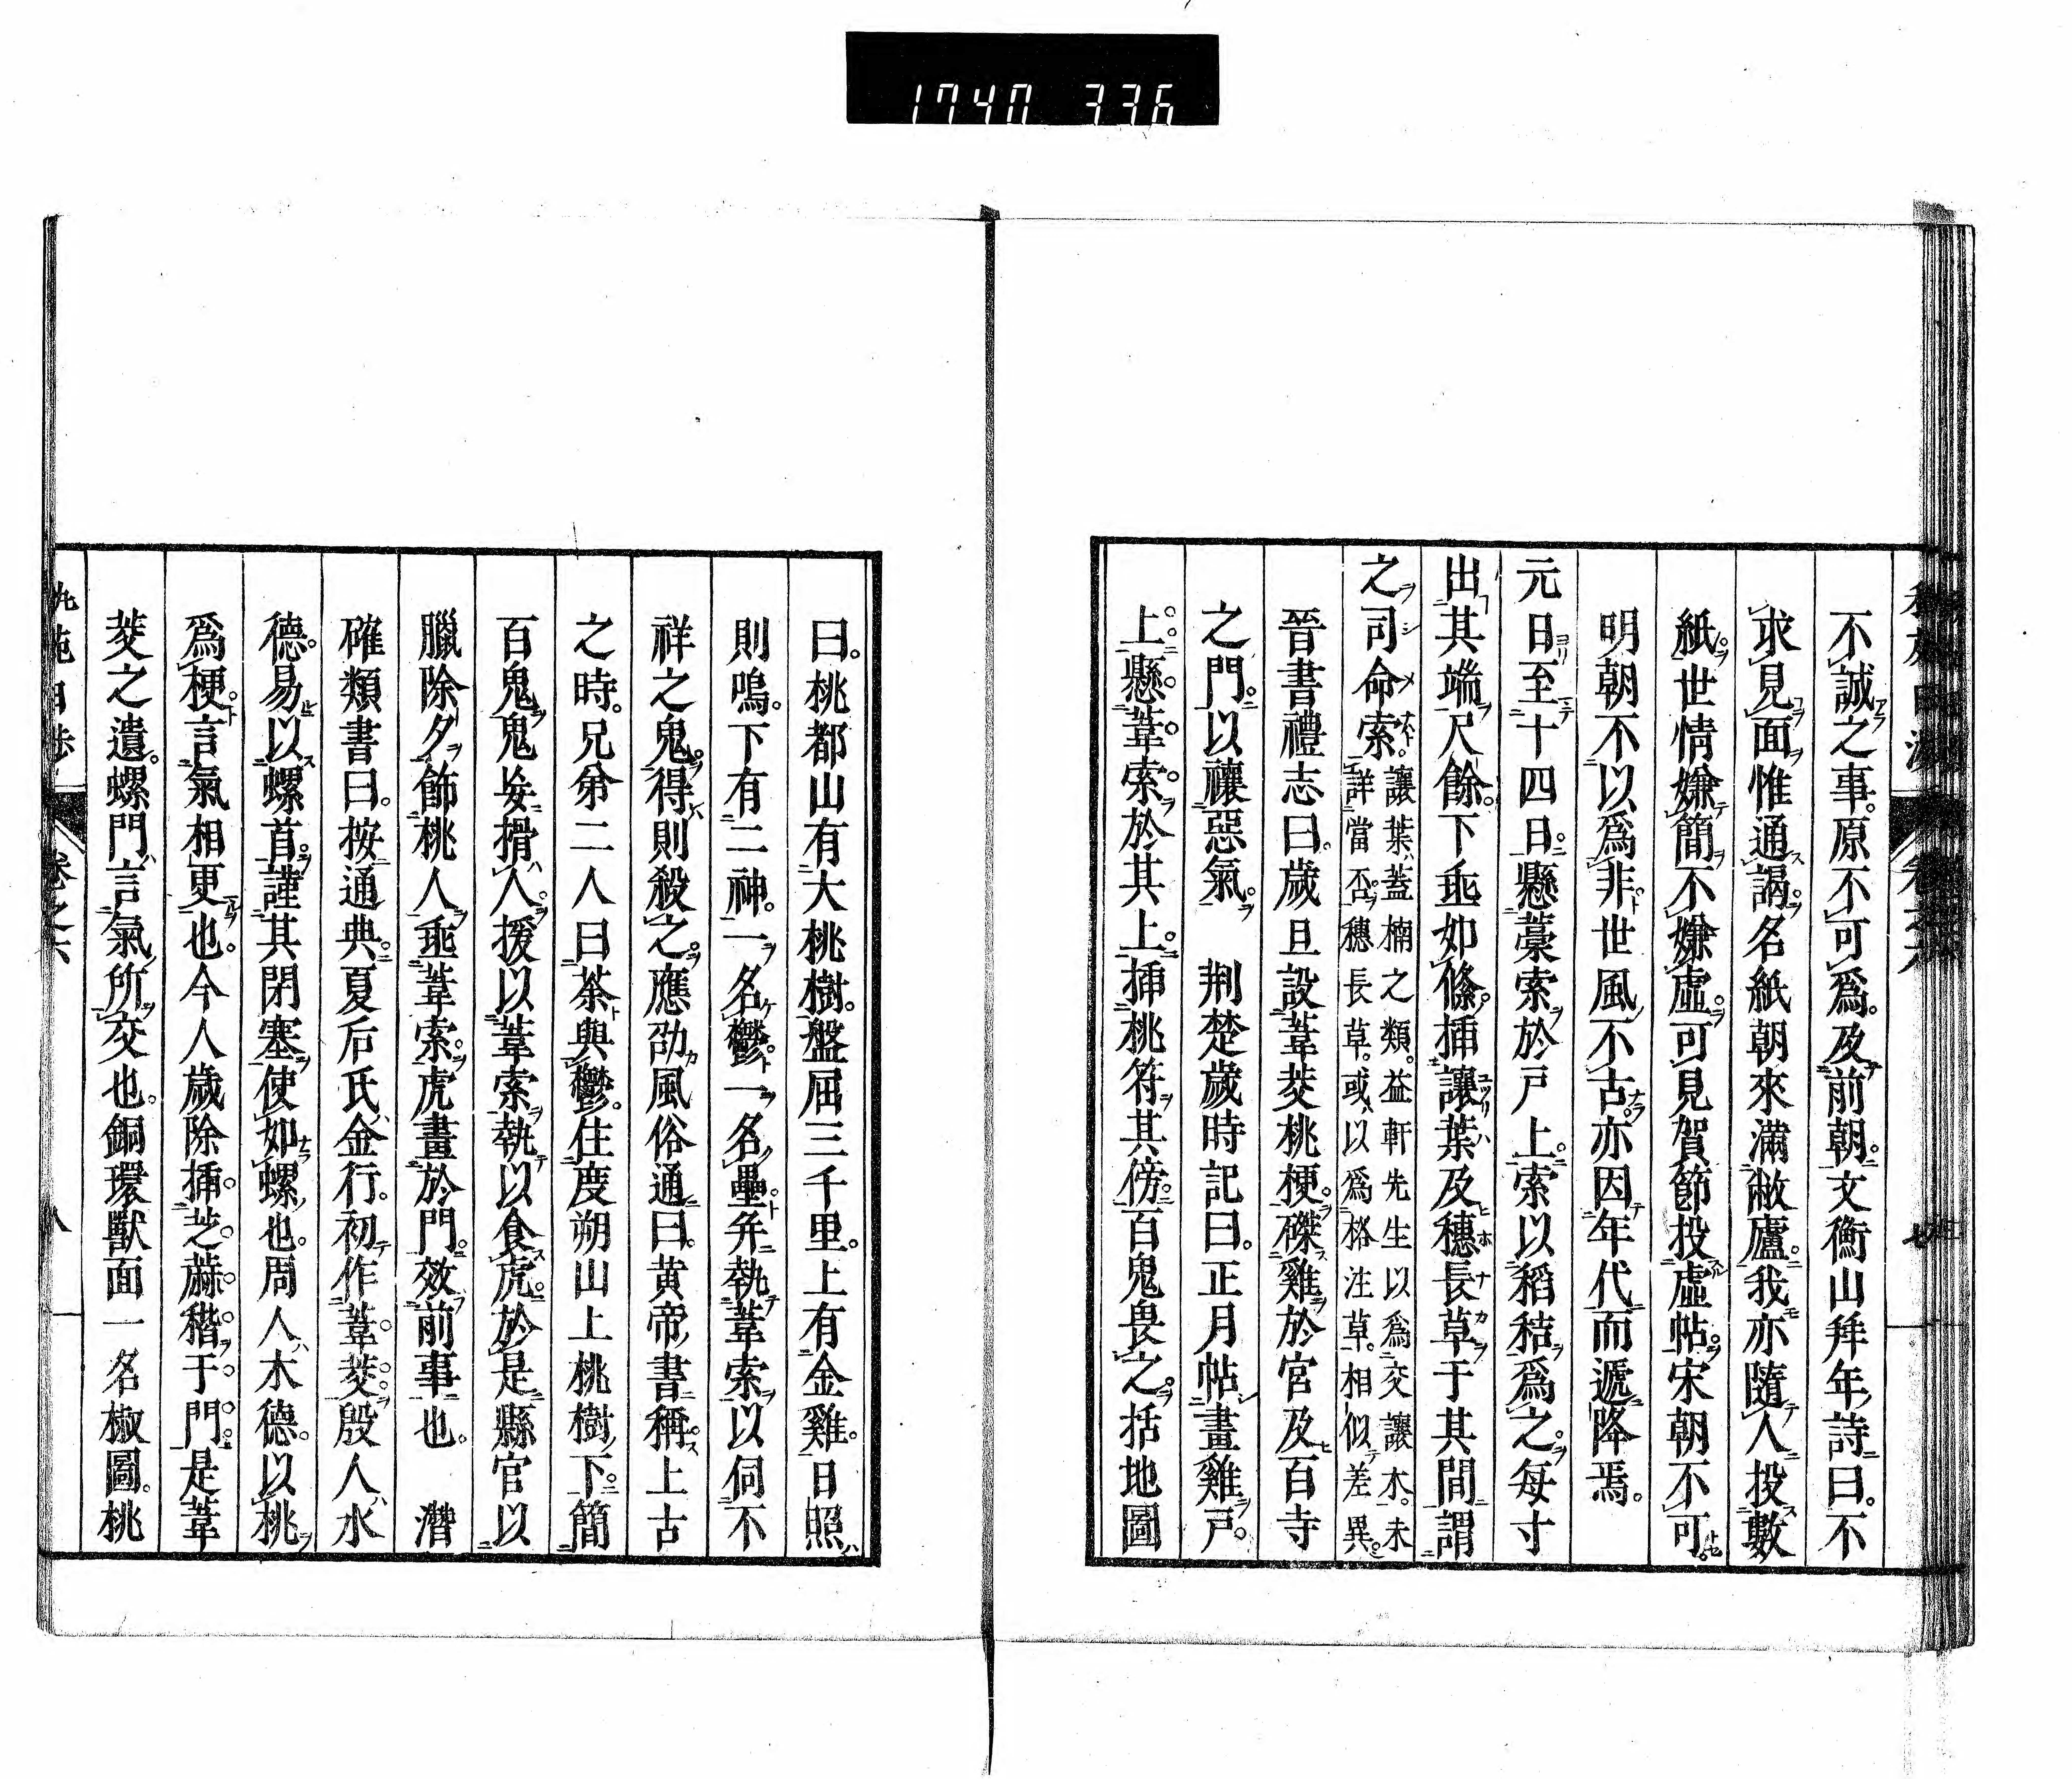 1740 336
不誠之事。原不可爲。及前朝。文衡山拜年詩曰。不
求見面惟通謁。名紙朝來滿敝廬。我亦隨人投數
紙。世情嫌簡不嫌虛。可見賀節投虛帖。宋朝不可。
明朝不以爲非。世風不古。亦因年代而遞降焉。
元日至十四日。懸藁索於戸上。索以稻秸爲之。每寸
出其端尺餘。下垂如條。插讓葉及穗長草于其間。謂
之司命索。讓葉、蓋楠之類。益軒先生以爲交讓木。未
詳當否。穗長草。或以爲格注草。相似差異。
晉書禮志曰。歲旦設葦茭桃梗。磔雞於宮及百寺
之門。以禳惡氣。 荆楚歲時記曰。正月帖畫雞戸。
上。懸葦索於其上。插桃符其傍。百鬼畏之。括地圖
曰。桃都山有大桃樹。盤屈三千里。上有金雞。日照
則鳴。下有二神。一名鬱。一名壘。并執葦索。以伺不
祥之鬼。得則殺之。應劭風俗通曰。黄帝書稱。上古
之時。兄弟二人。曰荼與鬱。住度朔山上桃樹下。簡
百鬼。鬼妄搰人。援以葦索。執以食虎。於是縣官以
臘除夕。飾桃人。垂葦索。虎畫於門。效前事也。 潛
確類書曰。按通典。夏后氏金行。初作葦茭。殷人水
德。易以螺首。謹其閉塞。使如螺也。周人木德。以桃
爲梗。言氣相更也。今人歲除插芝蔴稭于門。是葦
茭之遺。螺門、言氣所交也。銅環獸面一名椒圖。桃
卷之六
八